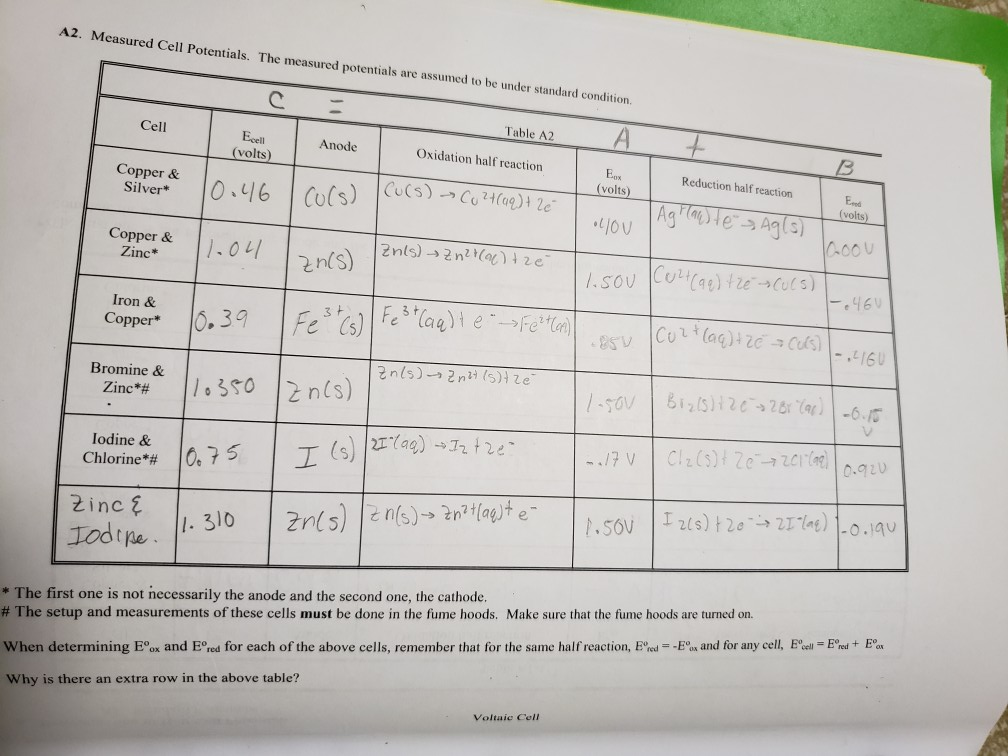 A2. Measured Cell Potentials. The measured potentials are assumed to be under standard condition.
C = A + B
Table A2
Cell Ecell (volts) Anode Oxidation half reaction Eox (volts) Reduction half reaction Ered (volts)
Copper & Silver* 0.46 Cu(s) Cu(s) → Cu2+(aq) + 2e- .40V Ag+(aq) + e- → Ag(s) 0.00V
Copper & Zinc* 1.04 Zn(s) Zn(s) → Zn2+(aq) + 2e- 1.50V Cu2+(aq) + 2e- → Cu(s) -.46V
Iron & Copper* 0.39 Fe3+(s) Fe3+(aq) + e- → Fe2+(aq) .85V Cu2+(aq) + 2e- → Cu(s) -.46V
Bromine & Zinc*# 1.350 Zn(s) Zn(s) → Zn2+(s) + 2e- 1.50V Br2(s) + 2e- → 2Br-(aq) -0.15 V
Iodine & Chlorine*# 0.75 I (s) 2I-(aq) → I2 + 2e- -.17 V Cl2(s) + 2e- → 2Cl-(aq) 0.92V
Zinc & Iodine. 1.310 Zn(s) Zn(s) → Zn2+(aq) + e- 1.50V I2(s) + 2e- → 2I-(aq) -0.19V
* The first one is not necessarily the anode and the second one, the cathode.
# The setup and measurements of these cells must be done in the fume hoods. Make sure that the fume hoods are turned on.
When determining E°ox and E°red for each of the above cells, remember that for the same half reaction, E°red = -E°ox and for any cell, E°cell = E°red + E°ox
Why is there an extra row in the above table?
Voltaic Cell